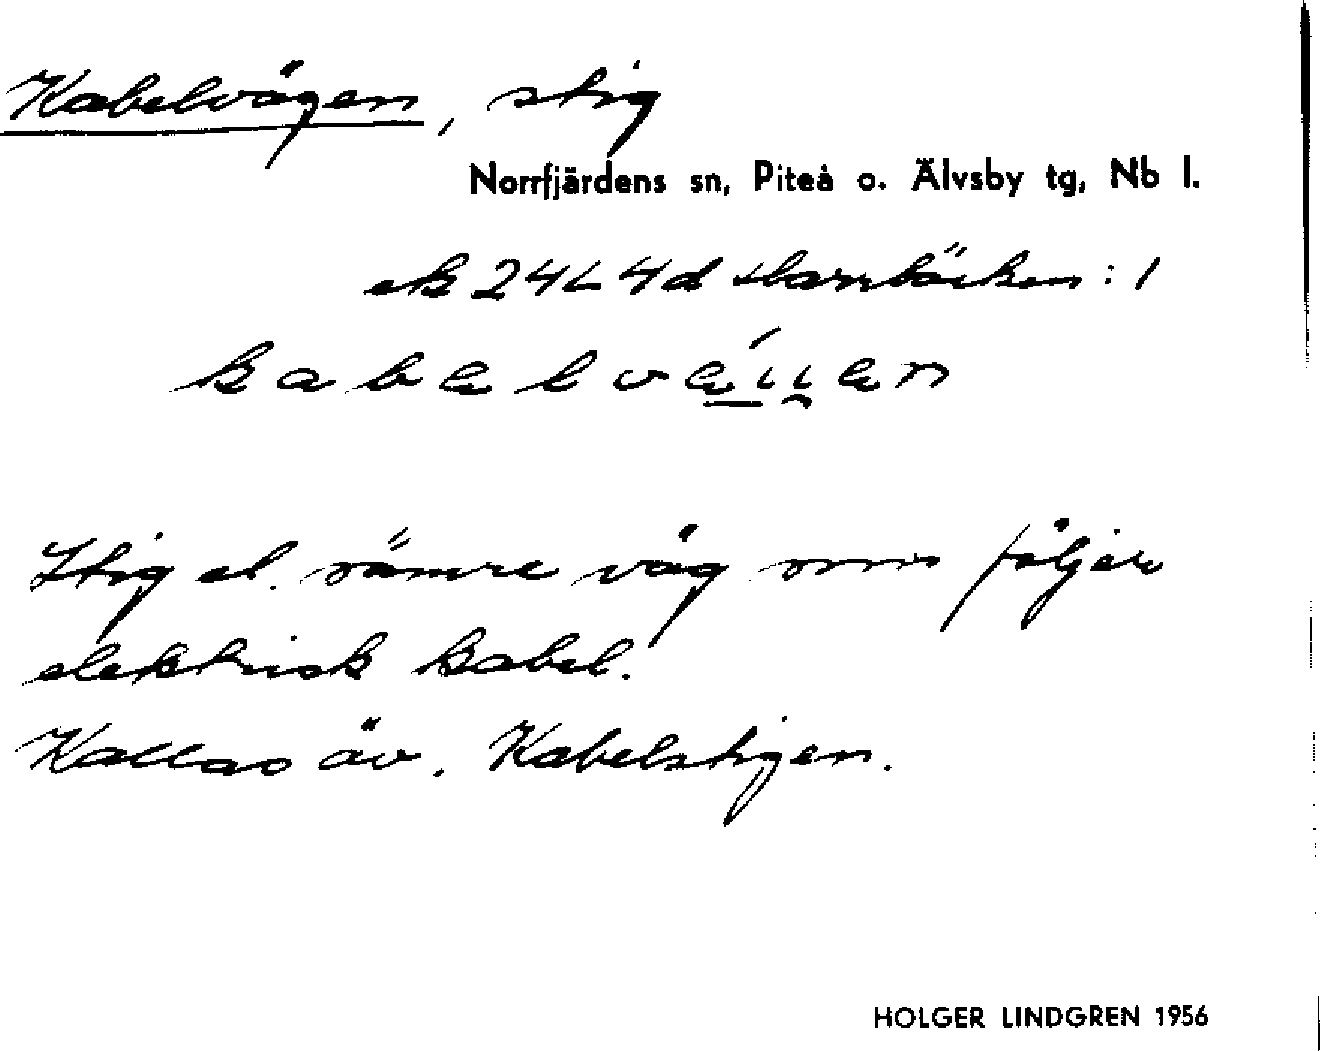 Kabelvägen, stig
Norrfjärdens sn, Piteå o. Älvsby tg, Nb l.
ek 24L4d Harrbäcken: 1
Stig el. sämre väg som följer
elektrisk kabel.
Kallas äv. Kabelstigen.
HOLGER LINDGREN 1956